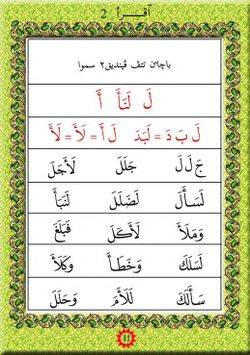 أقرأ 2
باچاﻥ تتڤ ڤينديق٢ سموا
لَ لَنَأَ أَ
لَ بَ دَ = لَبَدَ لَ أَ = لَأَ = لَأَ
جَ لَ لَ جَلَلَ لَأَجَلَ
لَسَأَلَ لَضَلَلَ لَنَبَأَ
وَمَلَأَ لَأَكَلَ فَبَلَغَ
لَسَلَكَ وَخَطَأَ وَكَلَأَ
سَأَلَكَ لَلَأَمَ وَحَلَلَ
11